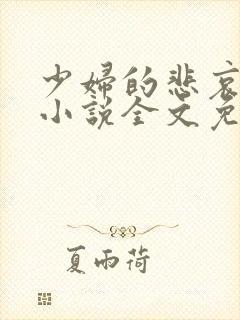 少婦的悲哀
小說全文免
夏雨荷